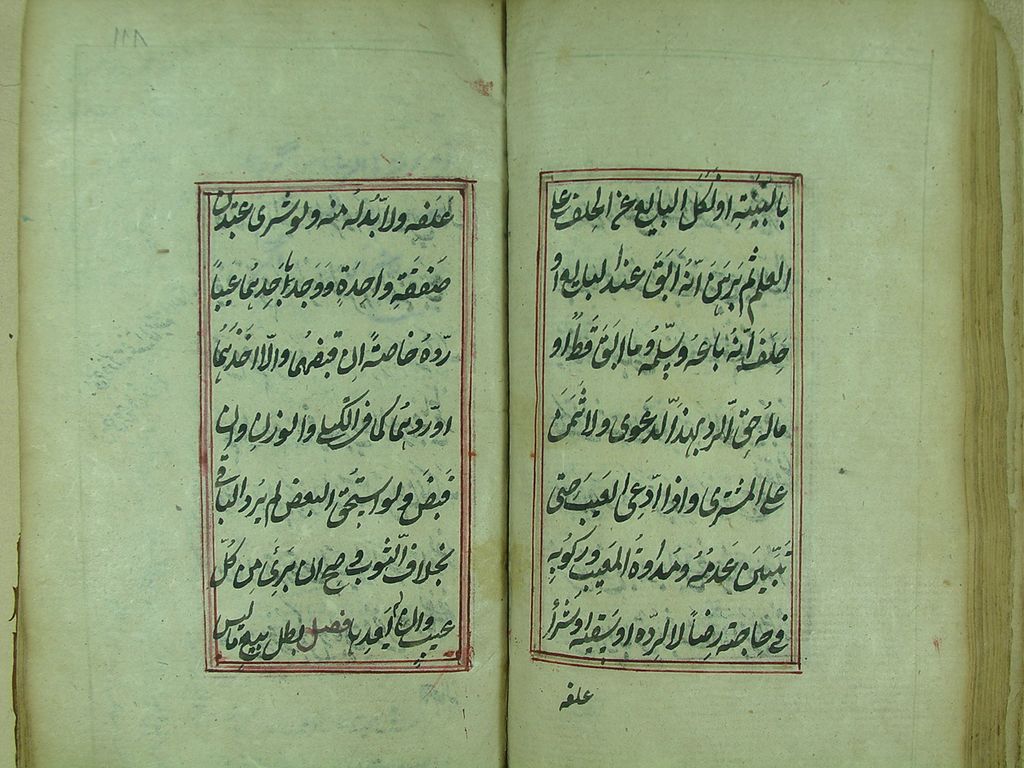 بالبينة او نكل البايع عن الحلف على
العلم ثم برهن انه ابق عند البايع او
حلف انه باعه وسلمه وما ابق قط او
ماله حق الرد بهذا الدعوى ولا ثمن
على المشترى واذا ادعى العيب حتى
تبين عدمه ومداوة المعيب وركوبه
فى حاجته رضاً لا لرده او سقيه او شراء
علفه
١١٨
علفه ولا بد له منه ولو شرى عبدين
صفقة واحدة ووجد باحدهما عيباً
رده خاصة ان قبضهما والا اخذهما
او ردهما كما فى الكيلى والوزنى وان
قبض ولو استحق البعض لم يرد الباقى
بخلاف الثوب وصح ان برئ من كل
عيب وان لم يعدها فصل بطل بيع ماليس